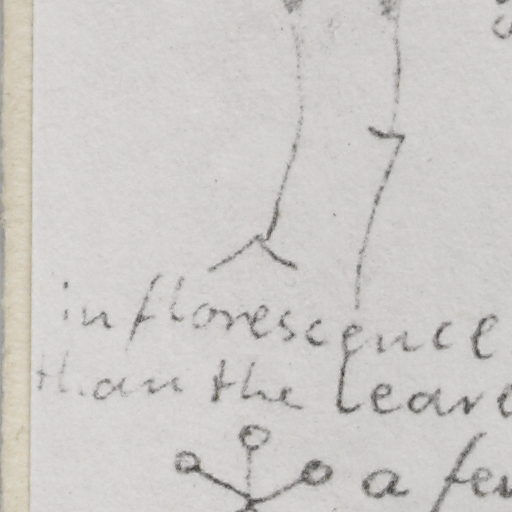 inflorescence
than the leave
a few